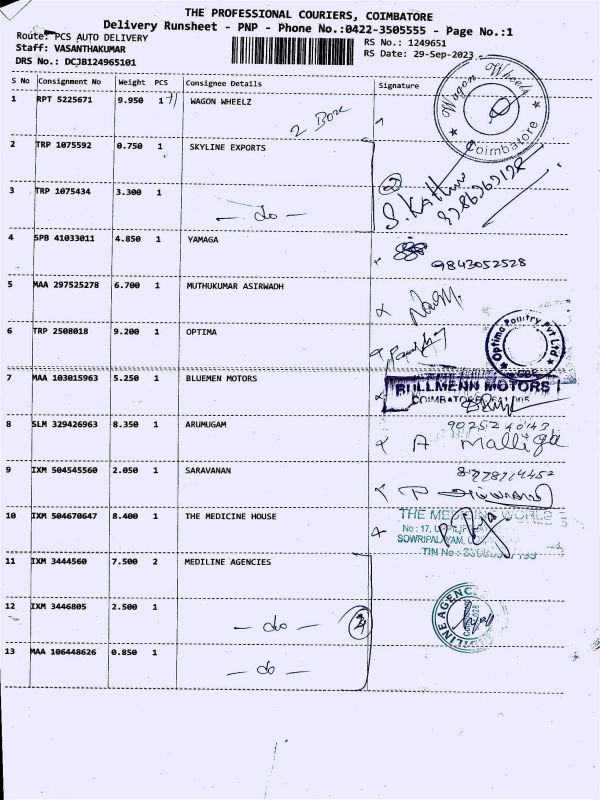 THE PROFESSIONAL COURIERS, COIMBATORE
Delivery Runsheet - PNP - Phone No.:0422-3505555 - Page No.:1
Route: PCS AUTO DELIVERY
RS No.: 1249651
Staff: VASANTHAKUMAR
RS Date: 29-Sep-2023
DRS No.: DCJB124965101
S No Consignment No Weight PCS Consignee Details Signature
1 RPT 5225671 9.950 1 WAGON WHEELZ
2 Box
Wagon Wheelz
Coimbatore
2 TRP 1075592 0.750 1 SKYLINE EXPORTS
3 TRP 1075434 3.300 1
- do -
2
4 SPB 41033011 4.850 1 YAMAGA
9843052528
5 MAA 297525278 6.700 1 MUTHUKUMAR ASIRWADH
6 TRP 2508018 9.200 1 OPTIMA
Optima Poultry Pvt Ltd
CBE
7 MAA 103015963 5.250 1 BLUEMEN MOTORS
BULLMENN MOTORS
COIMBATORE
8 SLM 329426963 8.350 1 ARUMUGAM
A Malliga
9 IXM 504545560 2.050 1 SARAVANAN
10 IXM 504670647 8.400 1 THE MEDICINE HOUSE
THE MEDICINE WORLD
No : 17,
SOWRIPALAYAM,
TIN No :
11 IXM 3444560 7.500 2 MEDILINE AGENCIES
12 IXM 3446805 2.500 1
- do -
13 MAA 106448626 0.850 1
- do -